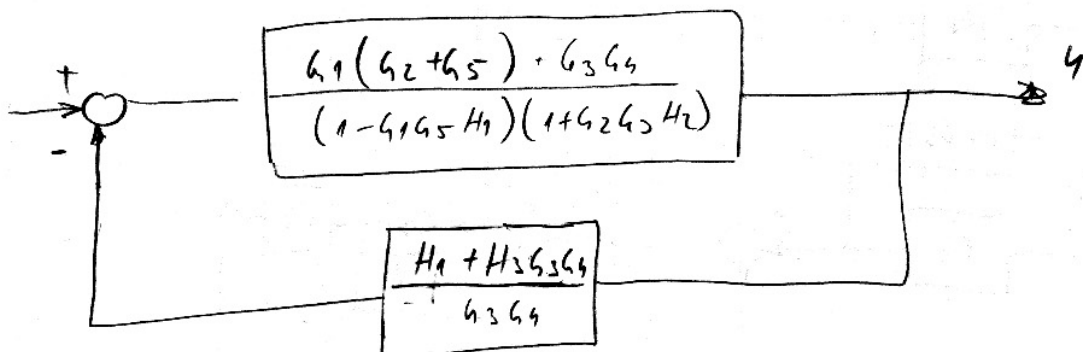 +
G1(G2+G5) · G3G4
(1-G1G5H1)(1+G2G3H2)
y
-
H1 + H3G3G4
G3G4